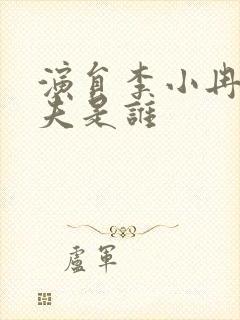 演員李小冉
夫是誰
盧軍